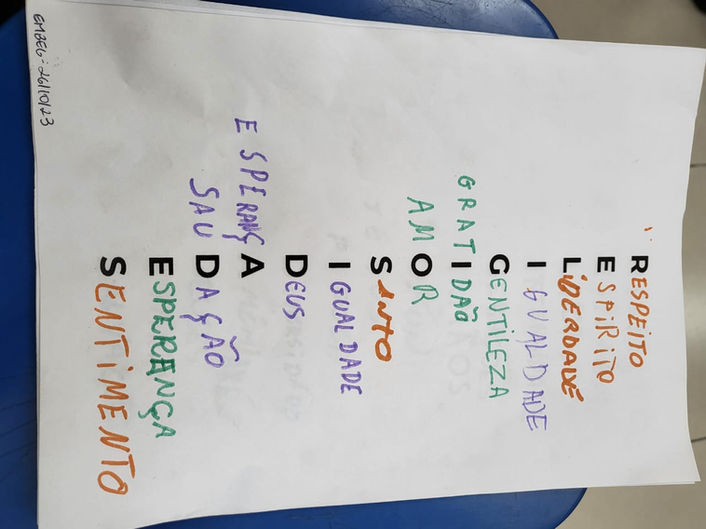 RESPEITO
ESPIRITO
LiBERDADE
IGUALDADE
GENTILEZA
GRATIDÃO
AMOR
SANTO
IGUALDADE
DEUS
ESPERANÇA
SAUDAÇÃO
ESPERANÇA
SENTiMENTO
EMBEG-26/10/23